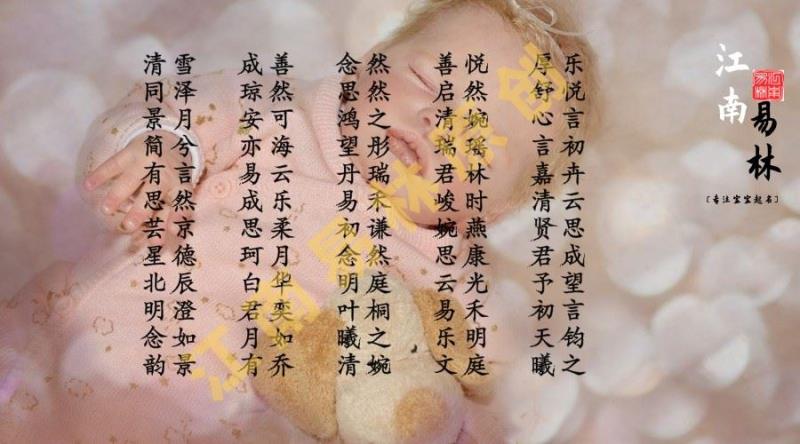 清雪 成善 念然 善悦 厚乐
同泽 琼然 思然 启然 舒悦
景月 安可 鸿之 清婉 心言
简兮 亦海 望彤 瑞瑶 言初
有言 易云 丹瑞 君林 嘉卉
思然 成乐 易禾 峻时 清云
芸京 思柔 初谦 婉燕 贤思
星德 珂月 念然 思康 君成
北辰 白华 明庭 云光 予望
明澄 君奕 叶桐 易禾 初言
念如 月如 曦之 乐明 天钧
韵景 有乔 清婉 文庭 曦之
江南易林
〔专注宝宝起名〕
江南易林原创